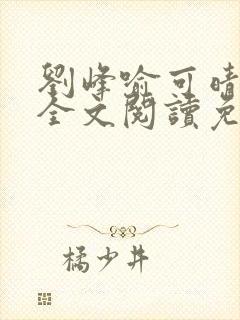 劉峰喻可晴
全文閱讀免
橘少井